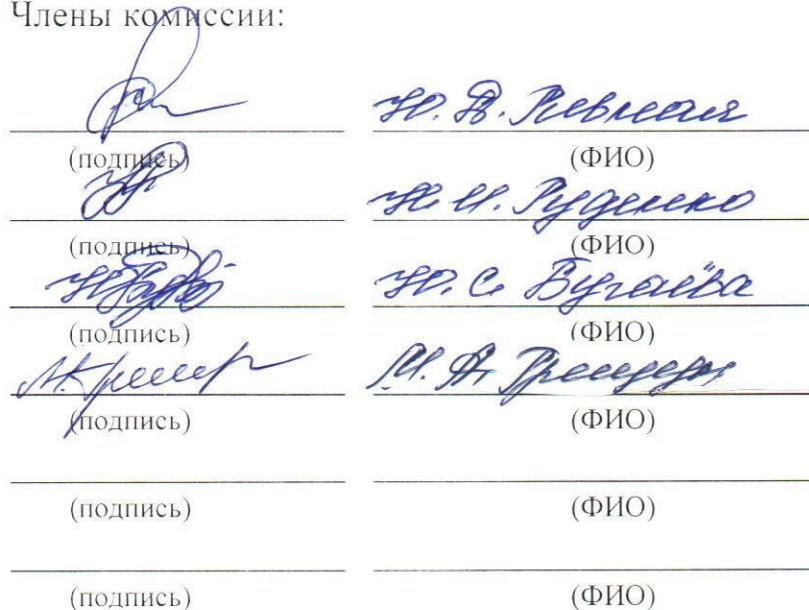 Члены комиссии:
Ю. В.
(подпись) (ФИО)
Н. И. Руденко
(подпись) (ФИО)
Ю. С. Бугаёва
(подпись) (ФИО)
М. А.
(подпись) (ФИО)
(подпись) (ФИО)
(подпись) (ФИО)